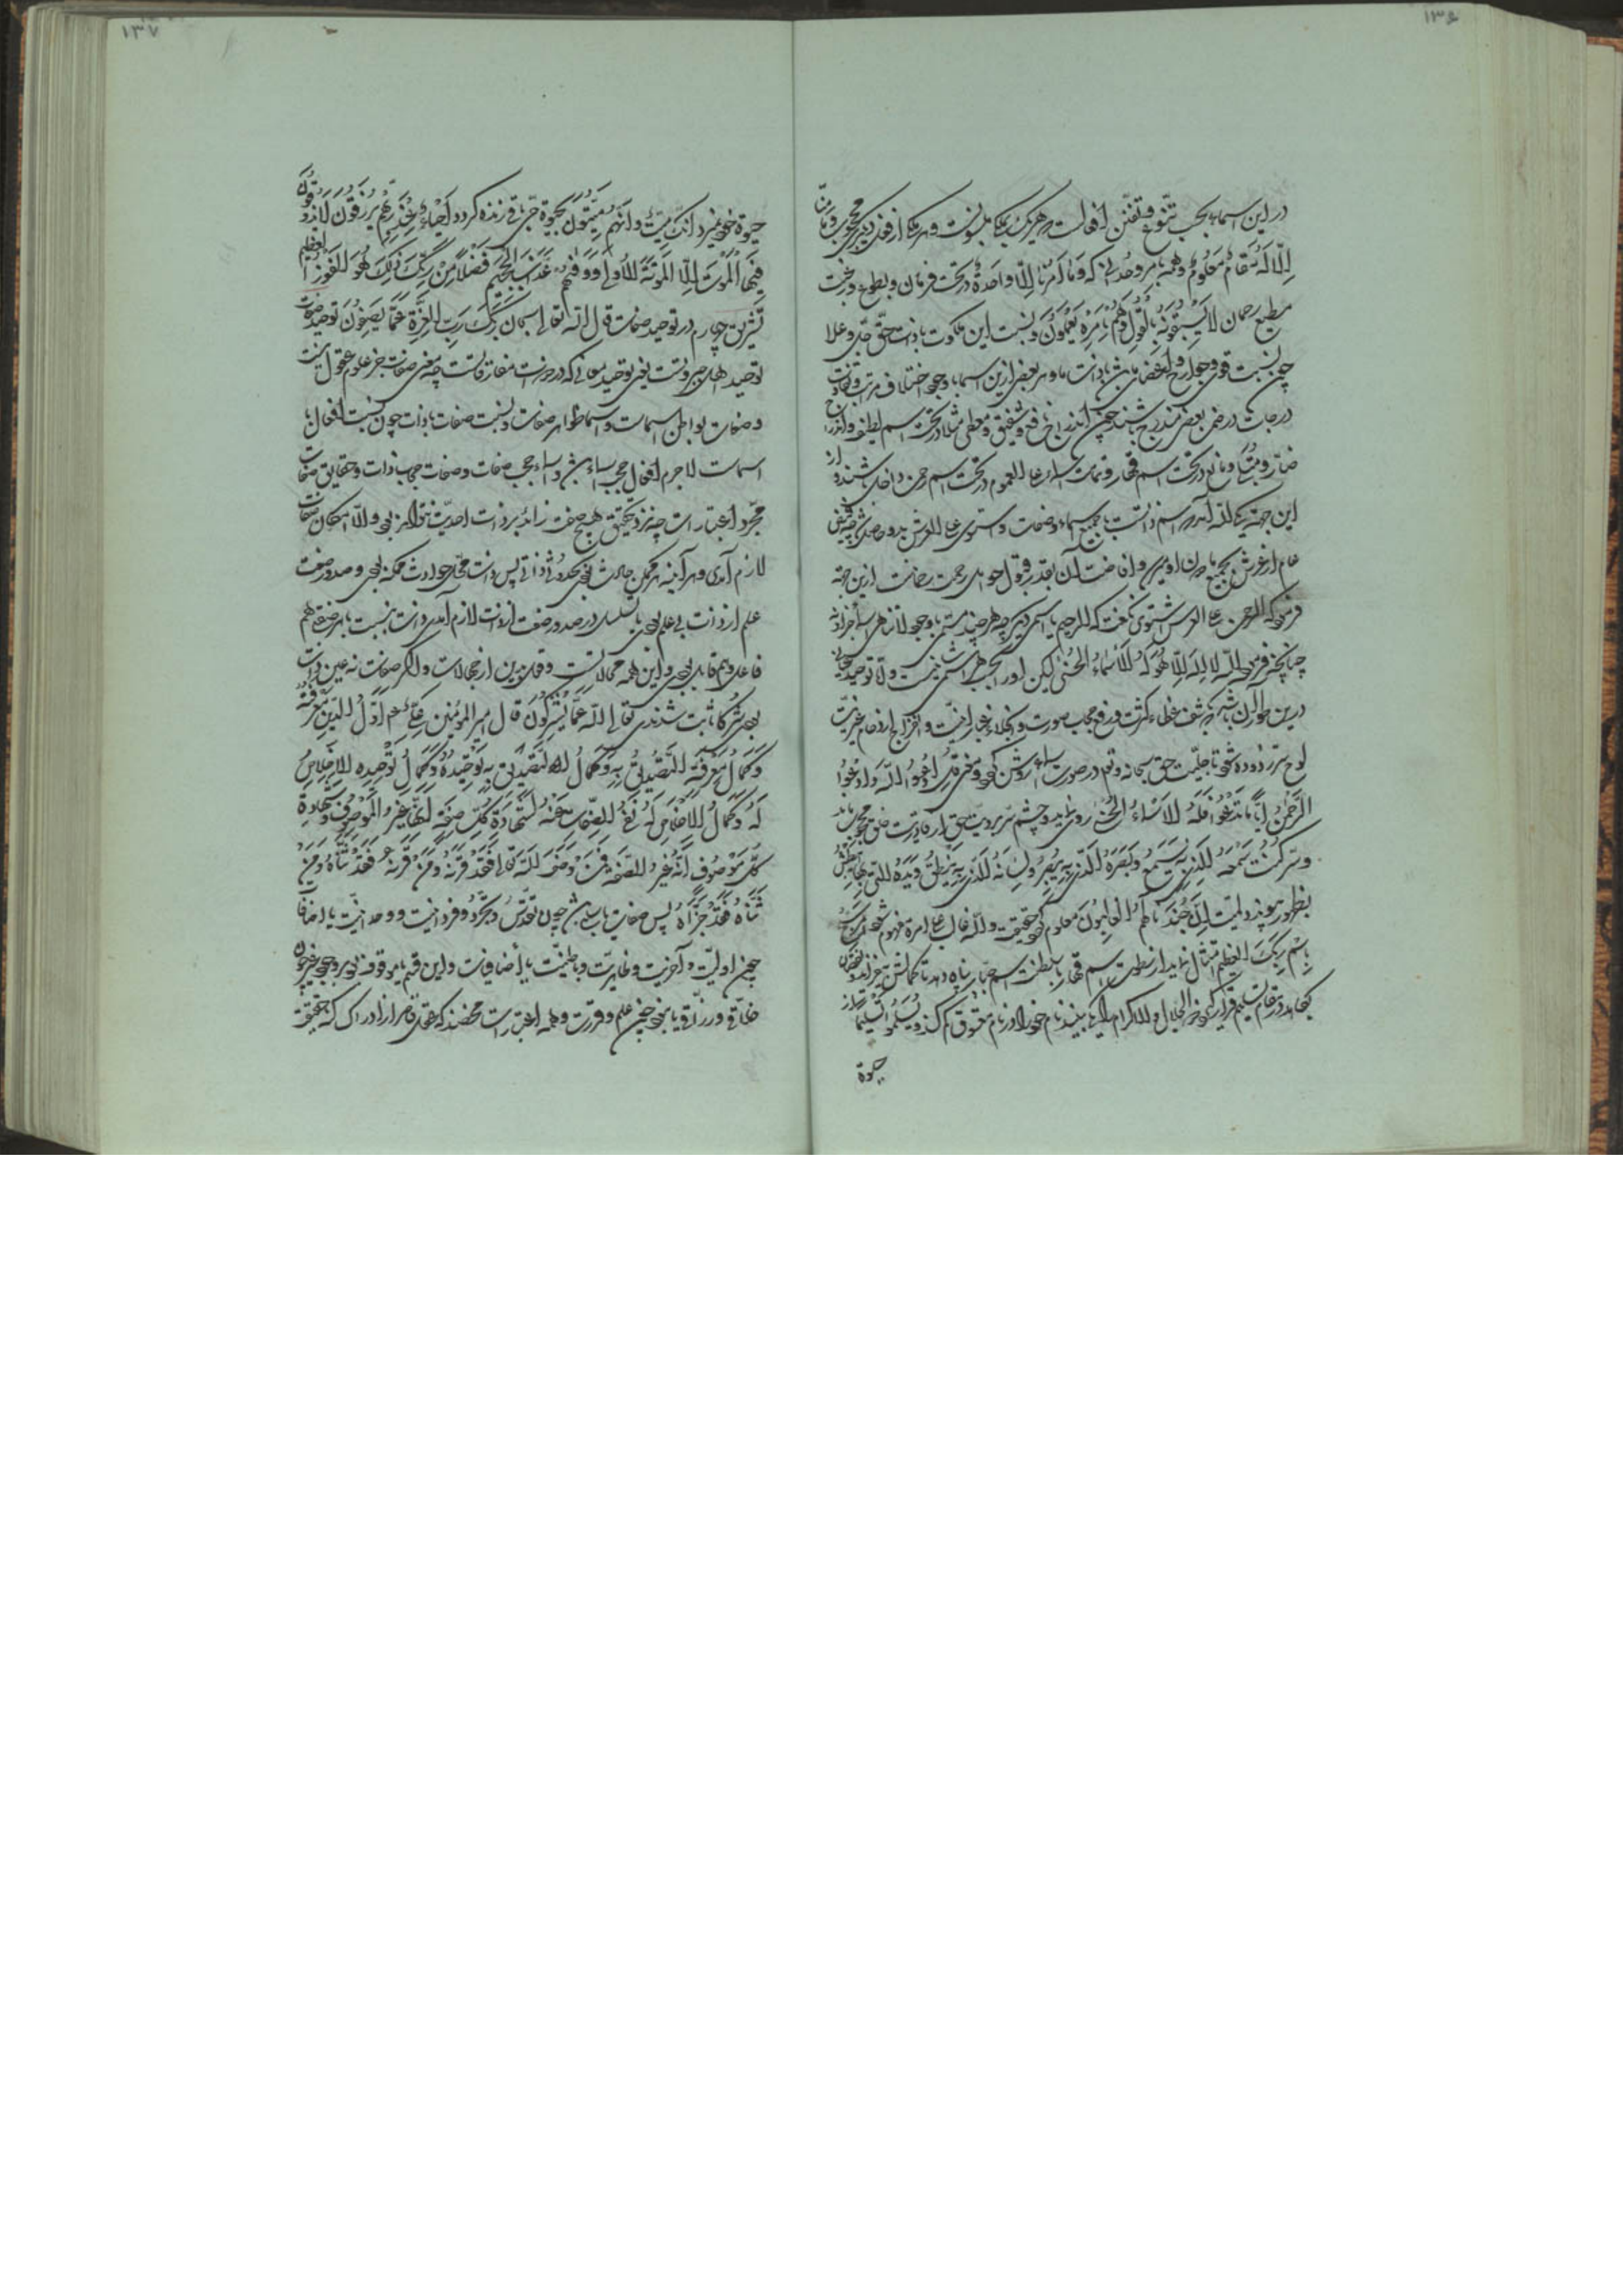 ۱۳۶
در این اسما بحسب تنوع و تفنن افعالست و هر یک بیک ملبوسست و هر یک از فعل دیگری محجوب وما منا
الا له مقام معلوم و همه بامر وحدانی که وما امرنا الا واحدة در تحت فرمان و بطوع و رغبت
مطیع رحمان لا یسبقونه بالقول وهم بامره یعملون و نسبت این ملکوت با ذات حق جل و علا
چون نسبت قوی و جوارح و اعضای ماست با ذات ما و هر بعضی ازین اسما با وجود اختلاف مراتب و تفاوت
درجات در ضمن بعضی مندرج باشند چون اندراج نافع و شفیق و معطی مثلا در تحت اسم لطیف و اندراج
ضار و منتقم و مانع در تحت اسم قهار و تمامت اسماء علی العموم در تحت اسم رحمن داخل باشند و از
این جهة یکی الله آمد و اسم ذاتست با جمیع اسماء و صفات و مستوی علی العرش بدو حاصل شد چه فیض
عام از عرش بجمیع ما دون او میرسد و افاضت آن بقدر قبول حوامل رحمت رحمانست ازین جهة
فرمود که الرحمن علی العرش استوی نگفت که الرحیم یا اسمی دیگر چه هر چند مسمی با وجود لا تناهی اسما جز ذات
چنانچه فرمود الله لا اله الا هو له الاسماء الحسنی لیکن او را بحسب هر اسمی شانیست و لا توحید
درین طور آن باشد که بکشف غطاء کثرت و رفع حجاب صورت و انجلاء غبار اثنینیت و اخراج از دعاء غیریت
لوح سر زدوده شود تا جلیت حق سبحانه و تعالی در صورت اسماء روشن گردد و معنی قل ادعوا الله او ادعوا
الرحمن ایاما تدعوا فله الاسماء الحسنی روی نماید و چشم سر برویت حق از رویت خلق محجوب ماند
و سر کنت سمعه الذی به یسمع و بصره الذی به یبصر ولسانه الذی به ینطق ویده التی بها یبطش
بظهور پیوندد و لمیت ان جندنا لهم الغالبون معلوم گردد و حقیقت والله غالب علی امره مفهوم شود و سبح
باسم ربک العظیم امتثال نماید از سطوت اسم قهار بلطف اسم جبار پناه دهد تا کمالش نیز از نقصان
بکاهد و در مقام تسلیم قرار گیرد و ذو الجلال والاکرام را بیند نام خود را در نام معشوق گم کند و یسلموا تسلیما از
حیوة
۱۳۷
حیوة خود بمیرد انک میت وانهم میتون بحیوة حق باقی زنده گردد احیاء عند ربهم یرزقون لا یذوقون
فیها الموت الا الموتة الاولی ووقیهم عذاب الجحیم فضلا من ربک ذلک هو الفوز العظیم
تشریق چهارم در توحید صفات قال الله تعالی سبحان ربک رب العزة عما یصفون توحید صفات
توحید اهل جبروتست یعنی توحید معانی که در حضرت مفارقاتست چه معنی صفات جز علوم عقول نیست
و صفات بواطن اسماست و اسما ظواهر صفات و نسبت صفات با ذات چون نسبت افعال با
اسماست لاجرم افعال حجب اسماء باشند و اسماء حجب صفات و صفات حجاب ذات و حقایق صفات
مجرد اعتباراست چه نزد تحقیق هیچ صفت زائد بر ذات احدیت نتواند بود والا امکان صفات
لازم آمدی و هر آینه هر ممکن حادث بود بحدوث ذاتی پس ذات محل حوادث ممکنه بودی و صدور صفت
علم از ذات بی علم بودی یا تسلسل در صدور صفت از ذات لازم آمدی و ذات بنسبت با هر صفت هم
فاعل و هم قابل بودی و این همه محالاتست و قل من از محالات و اگر صفات نه عین ذات
بودی شرکا ثابت شدندی تعالی الله عما یشرکون قال امیر المؤمنین علی عم اول الدین معرفته
وکمال معرفته التصدیق به وکمال التصدیق به توحیده وکمال توحیده الاخلاص
له وکمال الاخلاص له نفی الصفات عنه لشهادة کل صفة انها غیر الموصوف وشهادة
کل موصوف انه غیر الصفة فمن وصف الله تعالی فقد قرنه ومن قرنه فقد ثناه ومن
ثناه فقد جزاه پس صفات یا سلبی باشد چون تقدس و تجرد و فردانیت و وحدانیت یا اضافی
چون اولیت و آخریت و ظاهریت و باطنیت یا اضافیات و این قسم یا موقوف بود بر وجود غیر چون
خلاقی و رزاقی یا نبود چون علم و قدرت و همه اعتبارات محضند که عقل قاصر از ادراک که بحقیقت